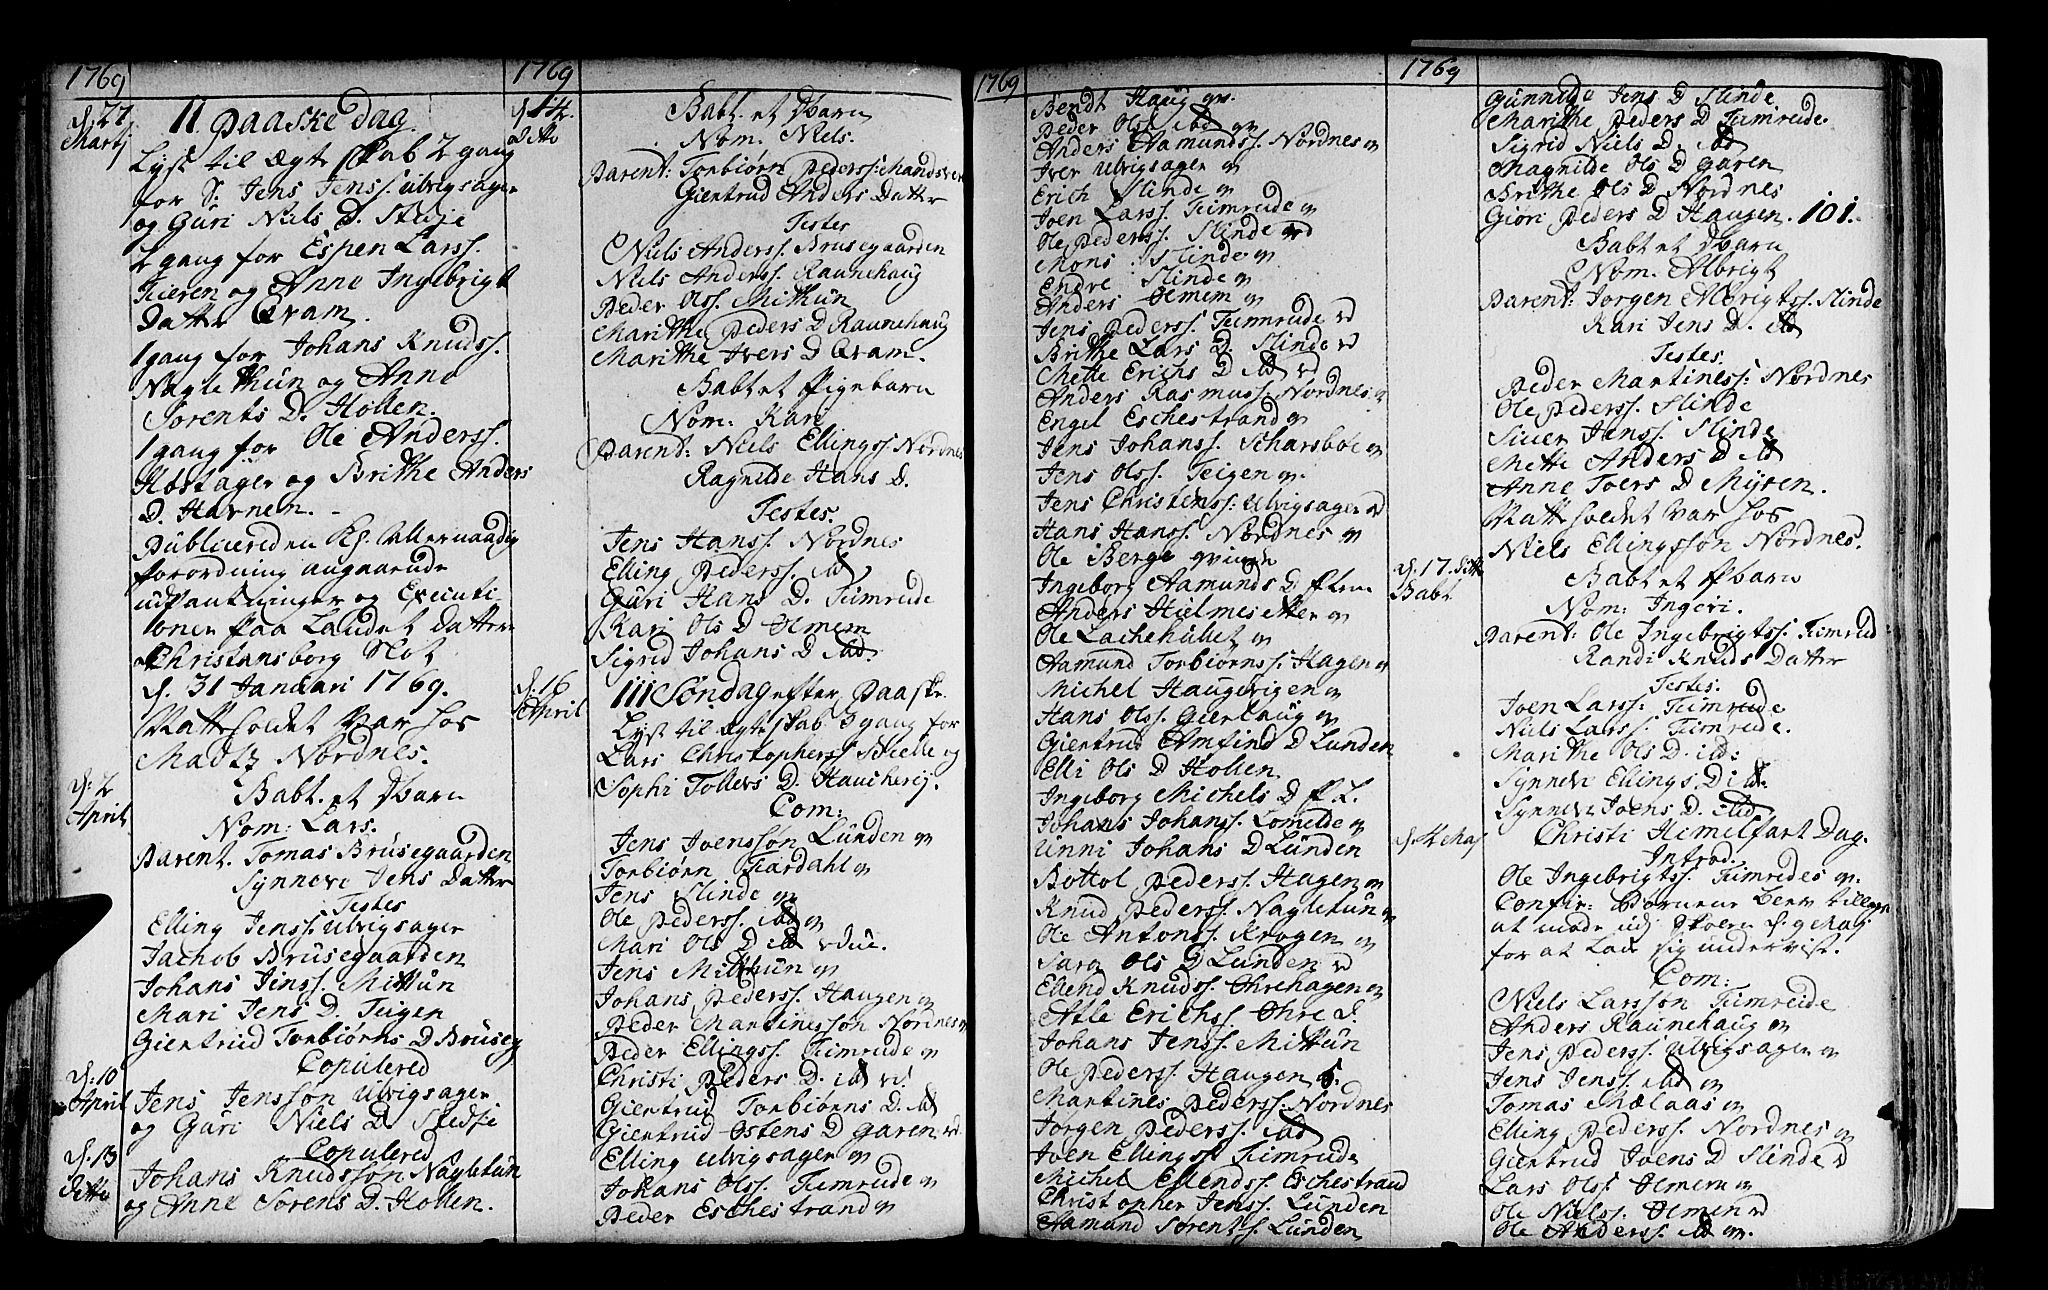 1769
d: 27
Martj
II. Paaske dag.
Lyst til Ægte skab 2 gang
for S: Jens Jenss: Ulvigsager
og Guri Niels D. Stedje
2 gang for Espen Larss.
og Anne Ingebrigt
Datter Qvam.
1 gang for Johans Knudss.
Naglethun og Anne
Sorents D. Hollen.
1 gang for Ole Anderss.
og Brithe Anders
D. Havnen.
Publicereden Kgl. Allernaadig
forordning angaaende
udpantninger og Executi
oner paa Landet datter
Christiansborg Slot
d. 31 Januari 1769.
var hos
Madtz Nordnes.
d: 2
April
Babt. et Dbarn
Nom: Lars.
Parent. Tomas Brusegaarden
Synneve Jens Datter
Testes
Elling Jenss: Ulvigsager
Jachob Brusegaarden
Johans Jenss. Mittun
Mari Jens D. Teigen
Giertrud Torbiørns D Bruseg
d: 10
April
Copulered
Jens Jensson Ulvigsager
og Guri Niels D Stedje
d: 13
ditto
Copulered
Johans Knudsson Nagletun
og Anne Sorens D. Hollen.
1769
d. 14.
ditto
Babt. et Dbarn
Nom. Niels.
Parent: Torbiørn Pederss:
Giertrud Anders Datter
Testes
Niels Anderss. Brusegaarden
Niels Anderss. Raunehaug
Peder Olss. Mithun
Marithe Peders D Raunehaug
Marithe Ivers D Qvam.
Babt et Pigebarn
Nom: Kari
Parent: Niels Ellingss Nordnes
Ragnilde Hans D.
Testes.
Jens Hanss. Nordnes
Elling Pederss. ibd
Guri Hans D. Timrude
Kari Ols D Ømem
Sigrid Johans D ibd.
d. 16
April
III Søndag efter Paaske
Lyst til Ægteskab 3 gang for
Lars Christopherss og
Sophi Tollevs D.
Com:
Jens Joensson Lunden
Torbiørn Fardahl
Jens Slinde
Ole Pederss. ibd
Mari Ols D ibd vdue.
Jens Mithun
Johans Pederss. Haugen
Peder Martinesson Nordnes
Peder Ellingss. Timrude
Christi Peders D. ibd
Giertrud Torbiørns D. ibd
Giertrud Ostens D garen
Elling Ulvigsager
Johans Olss. Timrude
Peder Eschestrand
1769
Bendt Haug
Peder Olss ibd
Anders Aamundss. Nordnes
Iver Ulvigsager
Erich Slinde
Joen Larss. Timrude
Ole Pederss. Slinde
Mons Slinde
Endre Slinde
Anders Ømem
Jens Pederss. Timrude
Brithe Lars D. Slinde
Mette Erichs D ibd
Anders Rasmuss. Nordnes
Engel Eschestrand
Jens Johanss. Scharsboe
Jens Olss. Teigen
Jens Christenss: Ulvigsager
Hans Hanss. Nordnes
Ole Berge
Ingeborg Aamunds D
Anders Hielmesetter
Ole Lachehulet
Aamund Torbiørnss: Hagen
Michel Haugerigen
Hans Olss. Gierhaug
Giertrud Amfind D Lunden
Elli Ols D Hollen
Ingeborg Michels D
Johans Johanss. Lomelde
Unni Johans D Lunden
Bottol Pederss. Hagen
Knud Pederss. Nagletun
Ole Antonss. Krogen
Sara Ols D Lunden
Ellend Knudss. Øhrehagen
Atle Erichss Øhre
Johans Jenss. Mittun
Ole Pederss. Haugen
Martines Pederss. Nordnes
Jørgen Pederss. ibd
Joen Ellingss Timrude
Michel Ellendss. Eschestrand
Christopher Jenss. Lunden
Aamund Sørentss. Lunden
1769
Gunnilde Jens D Slinde
Marithe Peders D Timrude.
Sigrid Niels D. ibd
Magnilde Ols D garen
Brithe Ols D Nordnes
Giori Peders D Haugen. 101.
Babt et Dbarn
Nom. Albrigt
Parent: Jorgen Albrigtss. Slinde
Kari Jens D. ibd
Testes.
Peder Martiness: Nordnes
Ole Pederss. Slinde
Siuer Jenss. Slinde
Mette Anders D ibd
Anne Joers D Myren.
var hos
Niels Ellingsson Nordnes.
d. 17. ditto
Babt
Babt et Pbarn
Nom: Ingeri.
Parent: Ole Ingebrigtss. Timrud
Randi Knuds Datter
Testes.
Joen Larss: Timrude
Niels Larss. Timrude.
Marithe Ols D. ibd:
Synneve Ellings D: ibd.
Synneve Joens D. ibd
d. 4 Maj
Christi Himelfart Dag.
Introd.
Ole Ingebrigtss. Timrudes
Confir: Børnene
at møde udj Skolen d. 9 Maj
for at lade sig undervist.
Com:
Niels Larsson Timrude
Anders Raunehaug
Jens Pederss. Ulvigsager
Jens Jenss. ibd
Tomas Mælaas
Elling Pederss. Nordnes
Giertrud Joens D Slinde
Lars Olss. Ømem
Ole Nielss. Ømen
Ole Anderss. ibd